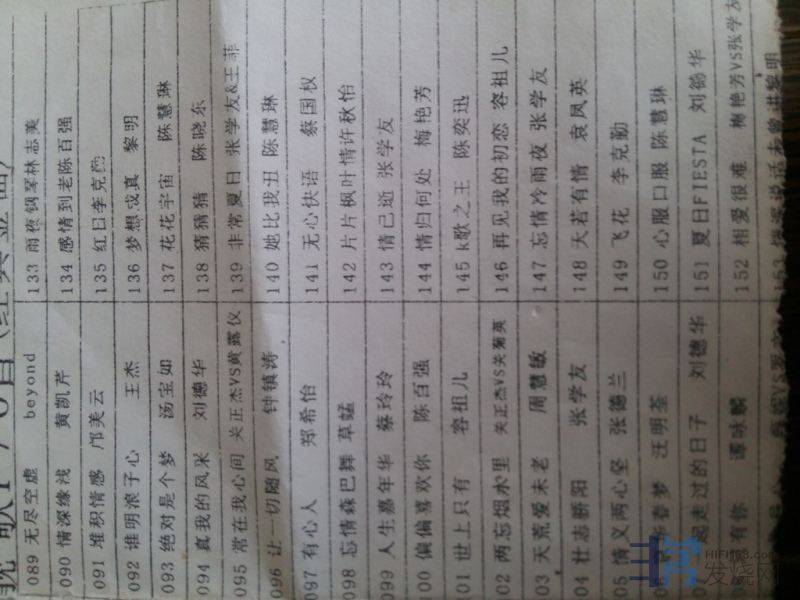 歌176首(经典金曲)
089 无尽空虚 beyond
090 情深缘浅 黄凯芹
091 堆积情感 邝美云
092 谁明浪子心 王杰
093 绝对是个梦 汤宝如
094 真我的风采 刘德华
095 常在我心间 关正杰VS黄露仪
096 让一切随风 钟镇涛
097 有心人 郑希怡
098 忘情森巴舞 草蜢
099 人生嘉年华 蔡玲玲
00 偏偏喜欢你 陈百强
01 世上只有 容祖儿
02 两忘烟水里 关正杰VS关菊英
03 天荒爱未老 周慧敏
04 壮志骄阳 张学友
05 情义两心坚 张德兰
华春梦 汪明荃
起走过的日子 刘德华
有你 谭咏麟
133 雨夜钢琴 林志美
134 感情到老 陈百强
135 红日 李克勤
136 梦想成真 黎明
137 花花宇宙 陈慧琳
138 猜猜猜 陈晓东
139 非常夏日 张学友&王菲
140 她比我丑 陈慧琳
141 无心快语 蔡国权
142 片片枫叶情 许秋怡
143 情已逝 张学友
144 情归何处 梅艳芳
145 k歌之王 陈奕迅
146 再见我的初恋 容祖儿
147 忘情冷雨夜 张学友
148 天若有情 袁凤英
149 飞花 李克勤
150 心服口服 陈慧琳
151 夏日FIESTA 刘德华
152 相爱很难 梅艳芳VS张学友
153
HIFI168.com
发烧网